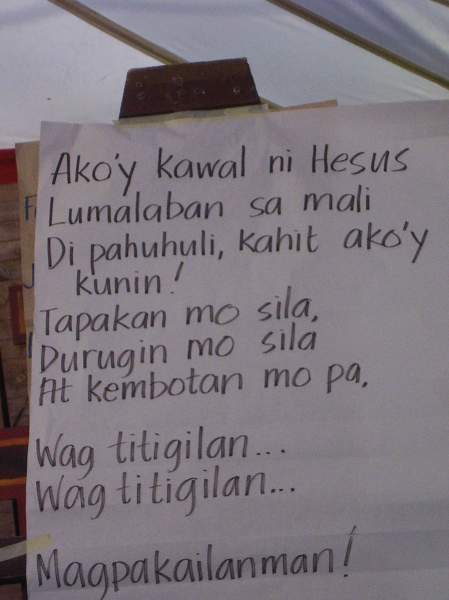 Ako'y kawal ni Hesus
Lumalaban sa mali
Di pahuhuli, kahit ako'y
kunin!
Tapakan mo sila,
Durugin mo sila
At kembotan mo pa.
Wag titigilan...
Wag titigilan...
Magpakailanman!